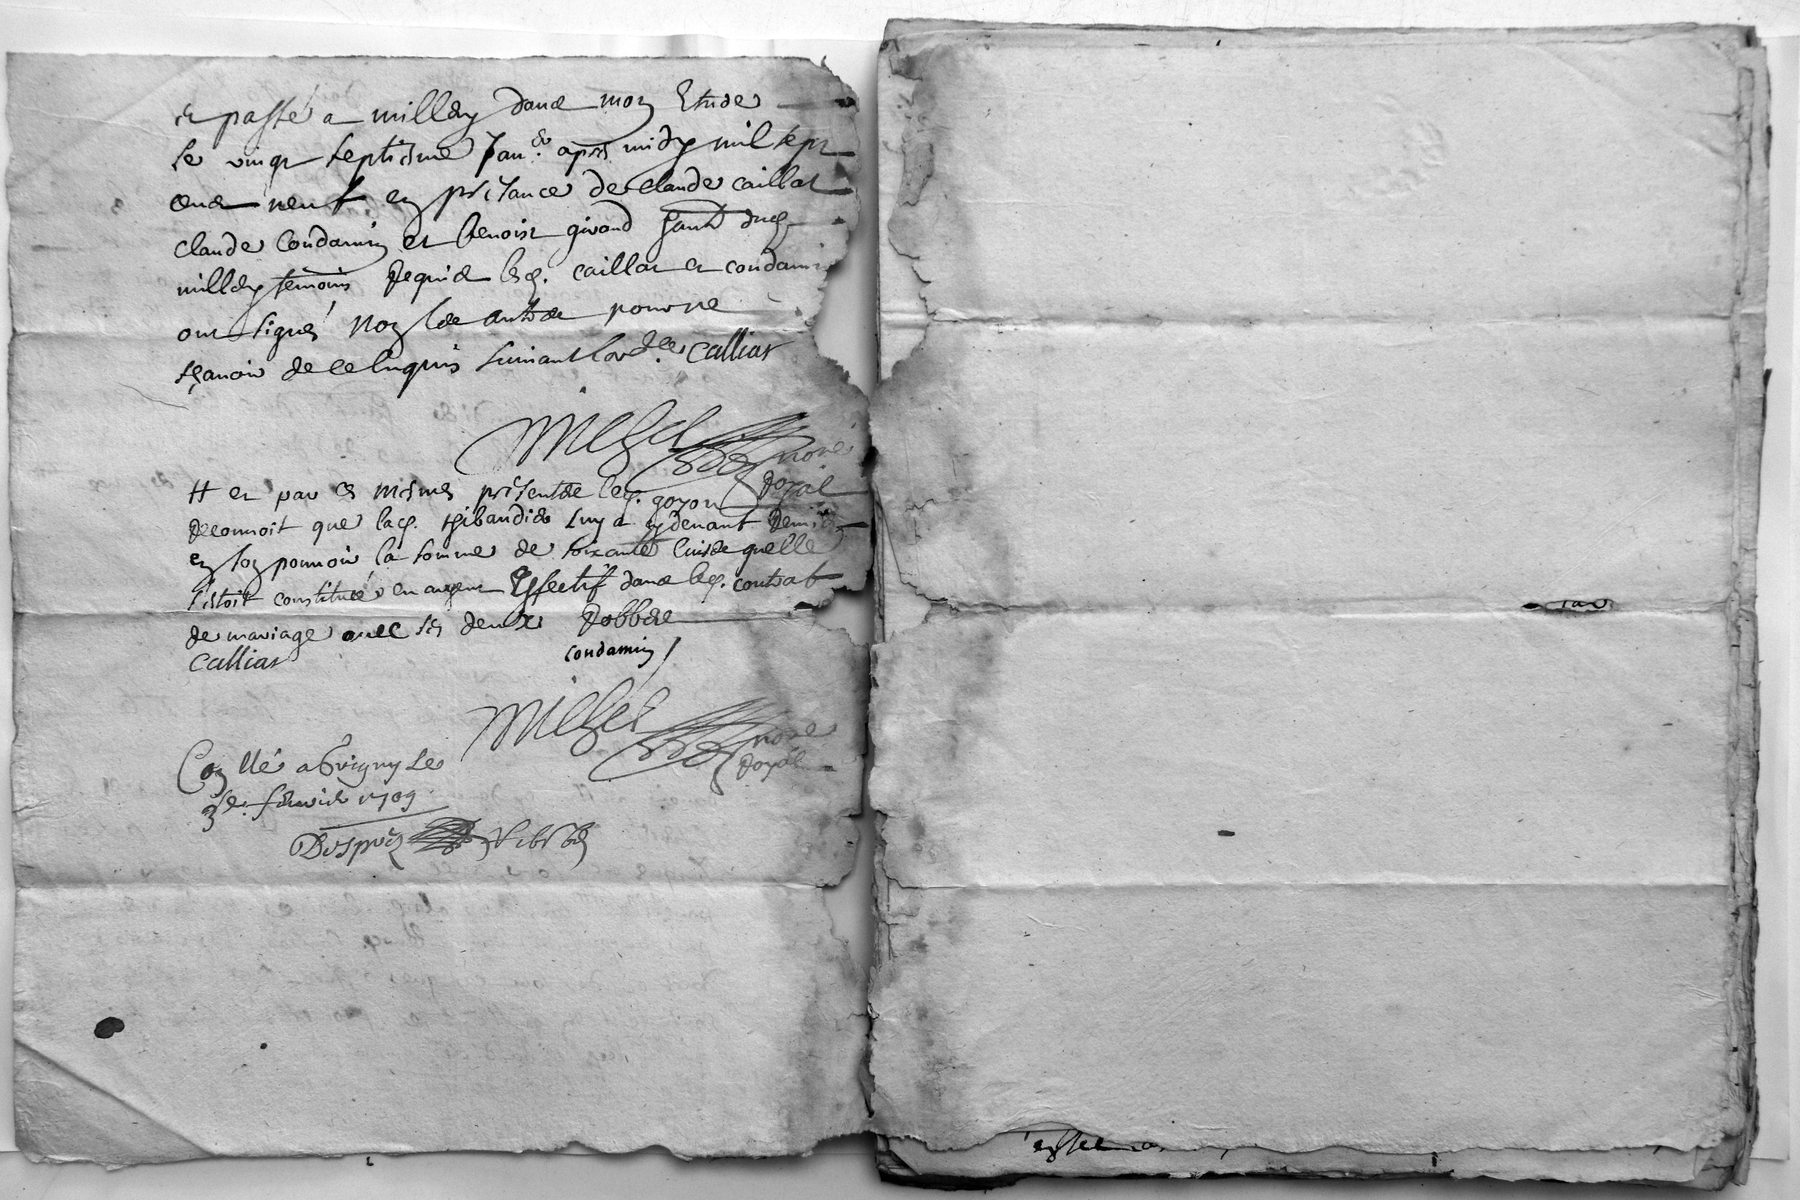 et passé a millery dans mon Etude
le vingt septiéme Janer. apres midy mil sept
cens neuf en présance de claude caillat
claude Condamin et benoist girond
millery temoins Requis lesq. caillat et condamin
ont signé non les autres pour ne
sçavoir de ce enquis suivant lord.ce Calliat
Michel nore
Royal
++ et par ces mesmes présentes leq. goyon
Reconnoit que laq. thibaudier luy a cydevant Remis
en son pouvoir la somme de soixante livres quelle
sestoit constitué en argent Effectif dans leq. contrat
de mariage avec ses deux Robbes
Calliat condamin
Michel nore
Royal
Con.llé a brigny Le
3e. février 1709